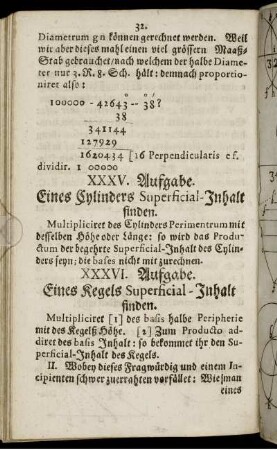 32.
Diametrum gn können gerechnet werden. Weil
wir aber dieses mahl einen viel grössern Maaß-
Stab gebrauchet/nach welchem der halbe Diame-
ter nur 3. R. 8. Sch. hält: demnach proportio-
niret also:
100000 - 42643 - 38?
38
341144
127929
1620434 [16 Perpendicularis ef.
dividir. 1 00000
XXXV. Aufgabe.
Eines Cylinders Superficial-Inhalt
finden.
Multipliciret des Cylinders Perimentrum mit
desselben Höhe oder Länge: so wird das Produ-
ctum der begehrte Superficial-Inhalt des Cylin-
ders seyn; die bases nicht mit zurechnen.
XXXVI. Aufgabe.
Eines Kegels Superficial-Inhalt
finden.
Multipliciret [1] des basis halbe Peripherie
mit des Kegelß Höhe. [2] Zum Producto ad-
diret des basis Inhalt: so bekommet ihr den Su-
perficial-Inhalt des Kegels.
II. Wobey dieses Fragwürdig und einem In-
cipienten schwer zuerrahten vorfället: Wie man
eines